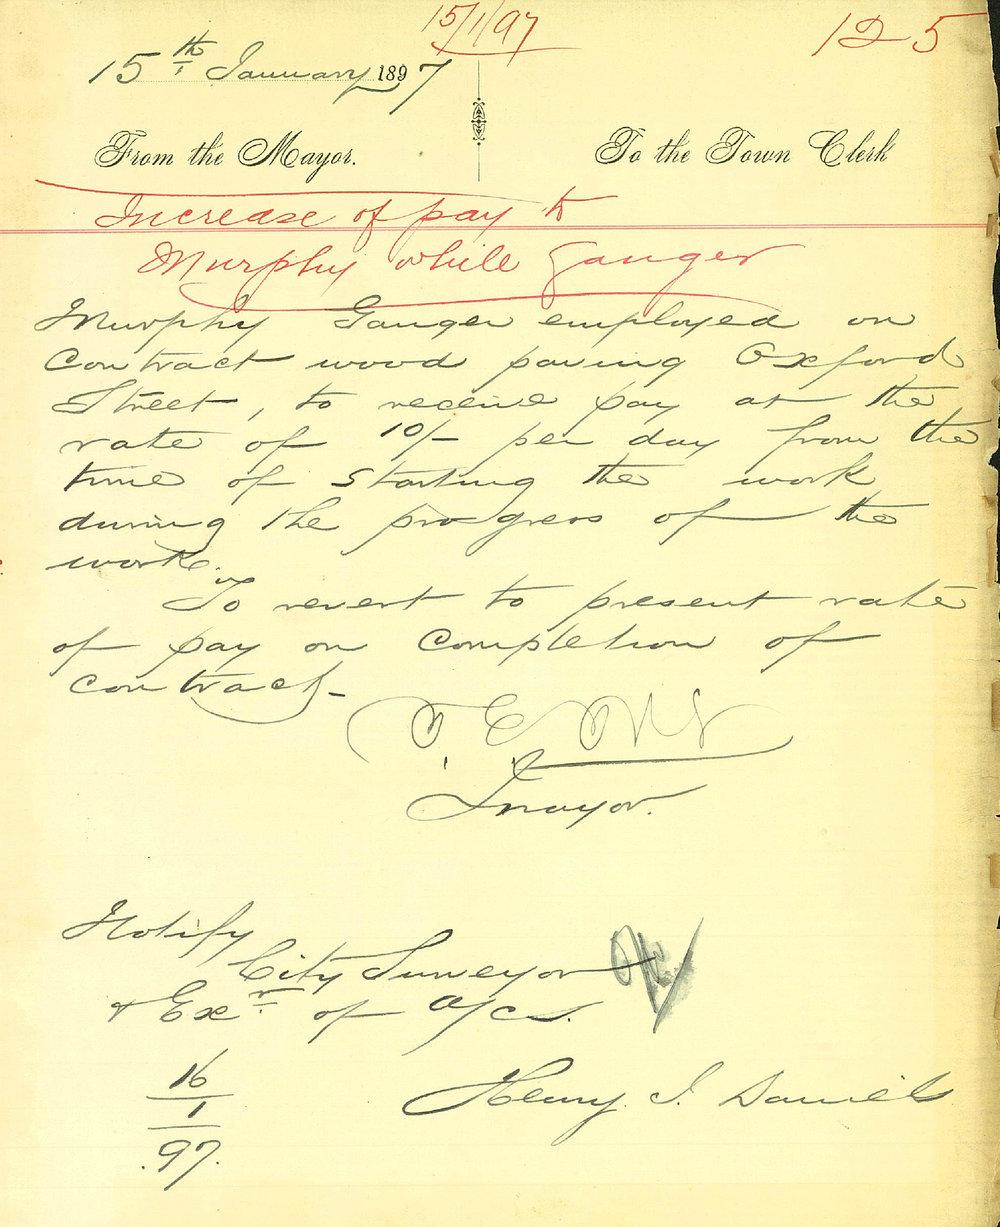 15/1/97
125
15th January 1897
From the Mayor.
To the Town Clerk
Increase of pay to
Murphy while Ganger
Murphy Ganger employed on
Contract wood paving Oxford
Street, to receive pay at the
rate of 10/- per day from the
time of starting the work
during the progress of the
work.
To revert to present rate
of pay on completion of
contract-
Mayor.
Notify
City Surveyor
& Exr of A/cs.
16
1
97.
Henry J. Daniels